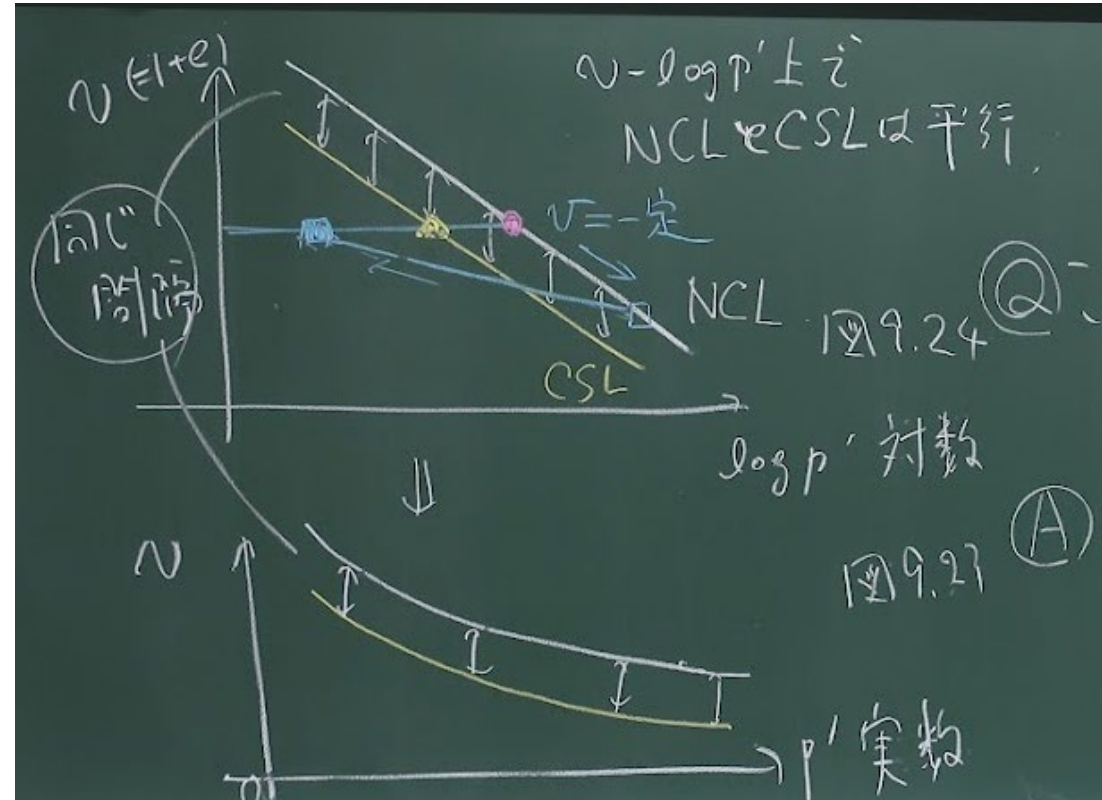 v (=1+e)
v-logp'上で
NCLとCSLは平行.
同じ
間隔
v=一定
NCL
CSL
図9.24
Q
logp' 対数
A
図9.23
v
p' 実数
0